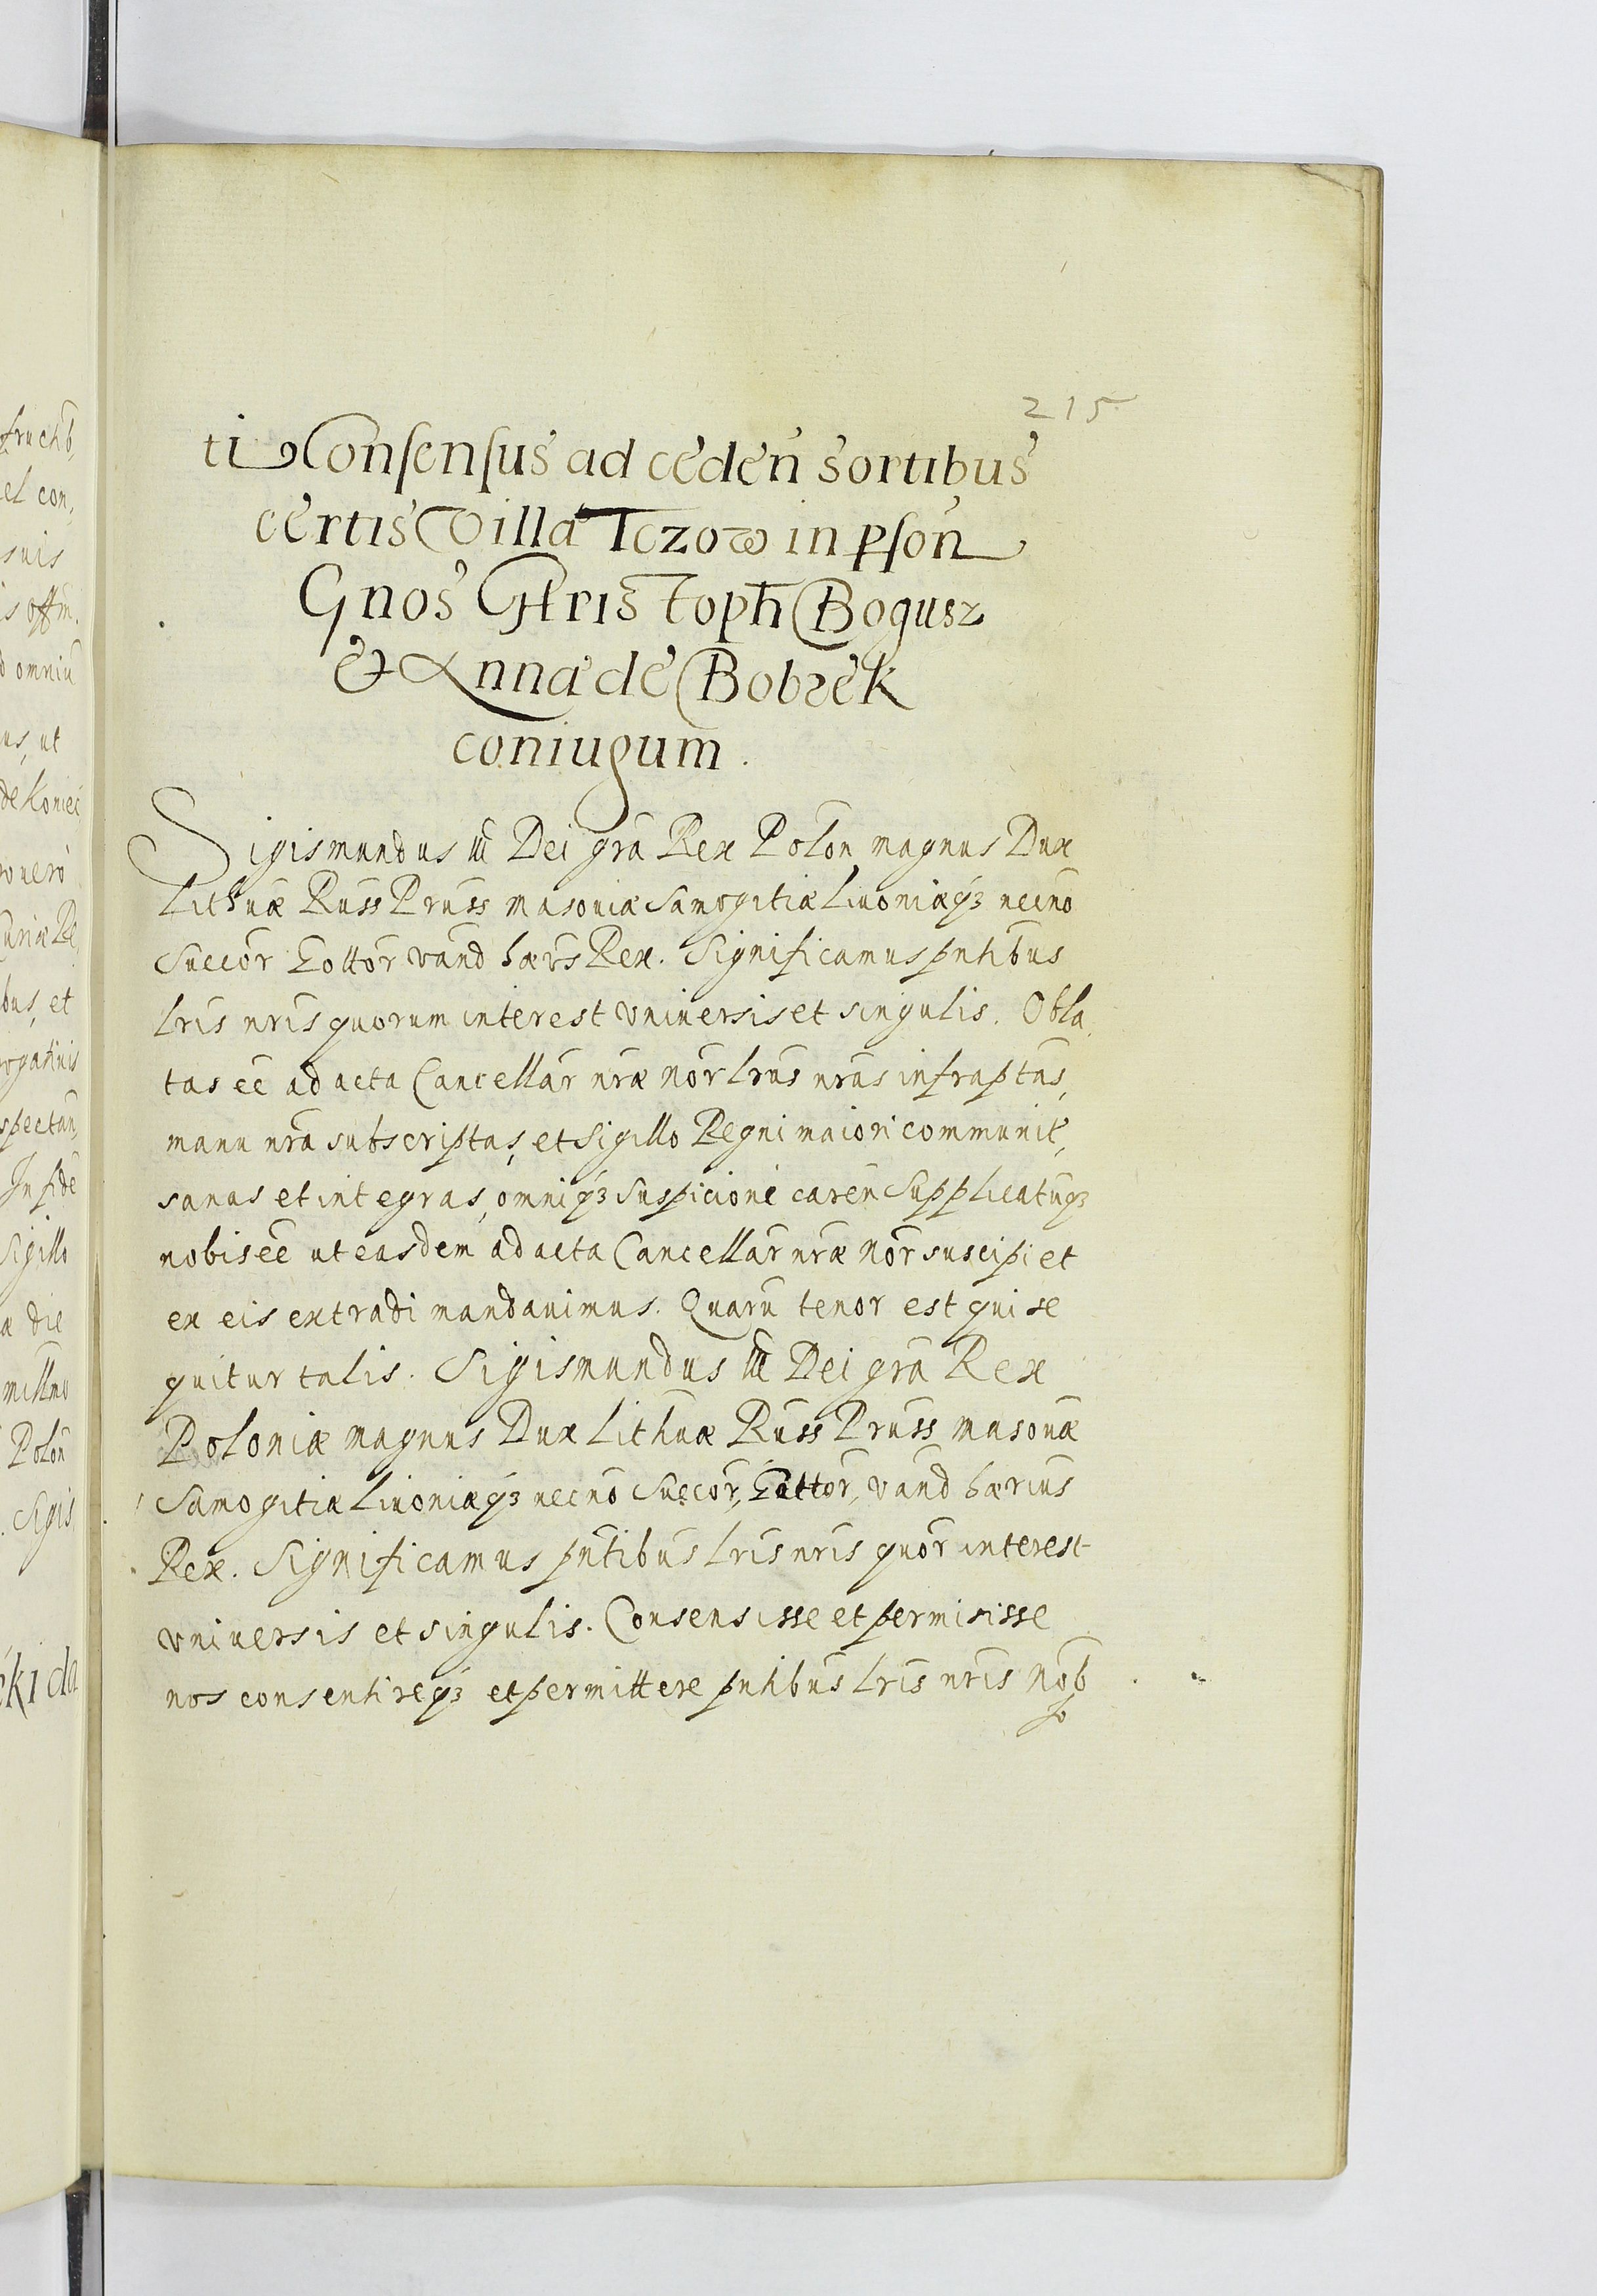 215
ti Consensus ad ceden sortibus
certis Villa Tczow in pson
Gnos Christoph Bogusz
et Anna de Bobrek
coniugum.
Sigismundus III Dei gra Rex Polon magnus Dux
Lithuæ Russ Pruss Masoviæ Samogitiæ Livoniæqз necno
Succor Gottor Vand hærs Rex. Significamus pntibus
lris nris quorum interest vniversis et singulis. Obla
tas ee ad acta Cancellar nræ nor lras nras infraptas,
manu nra subscriptas, et Sigillo Regni maiori communit,
sanas et integras, omniqз suspicione caren Supplicatuqз
nobis ee ut easdem ad acta Cancellar nræ nor suscipi et
ex eis extradi mandavimus. Quaru tenor est qui se
quitur talis. Sigismundus III Dei gra Rex
Poloniæ magnus Dux Lithuæ Russ Pruss masoviæ
Samogitiæ Livoniæqз necno Suecor, Gottor, Vand hærius
Rex. Significamus pntibus lris nris quor interest
vniversis et singulis. Consensisse et permisisse
nos consentireqз et permittere pntibus lris nris Nob